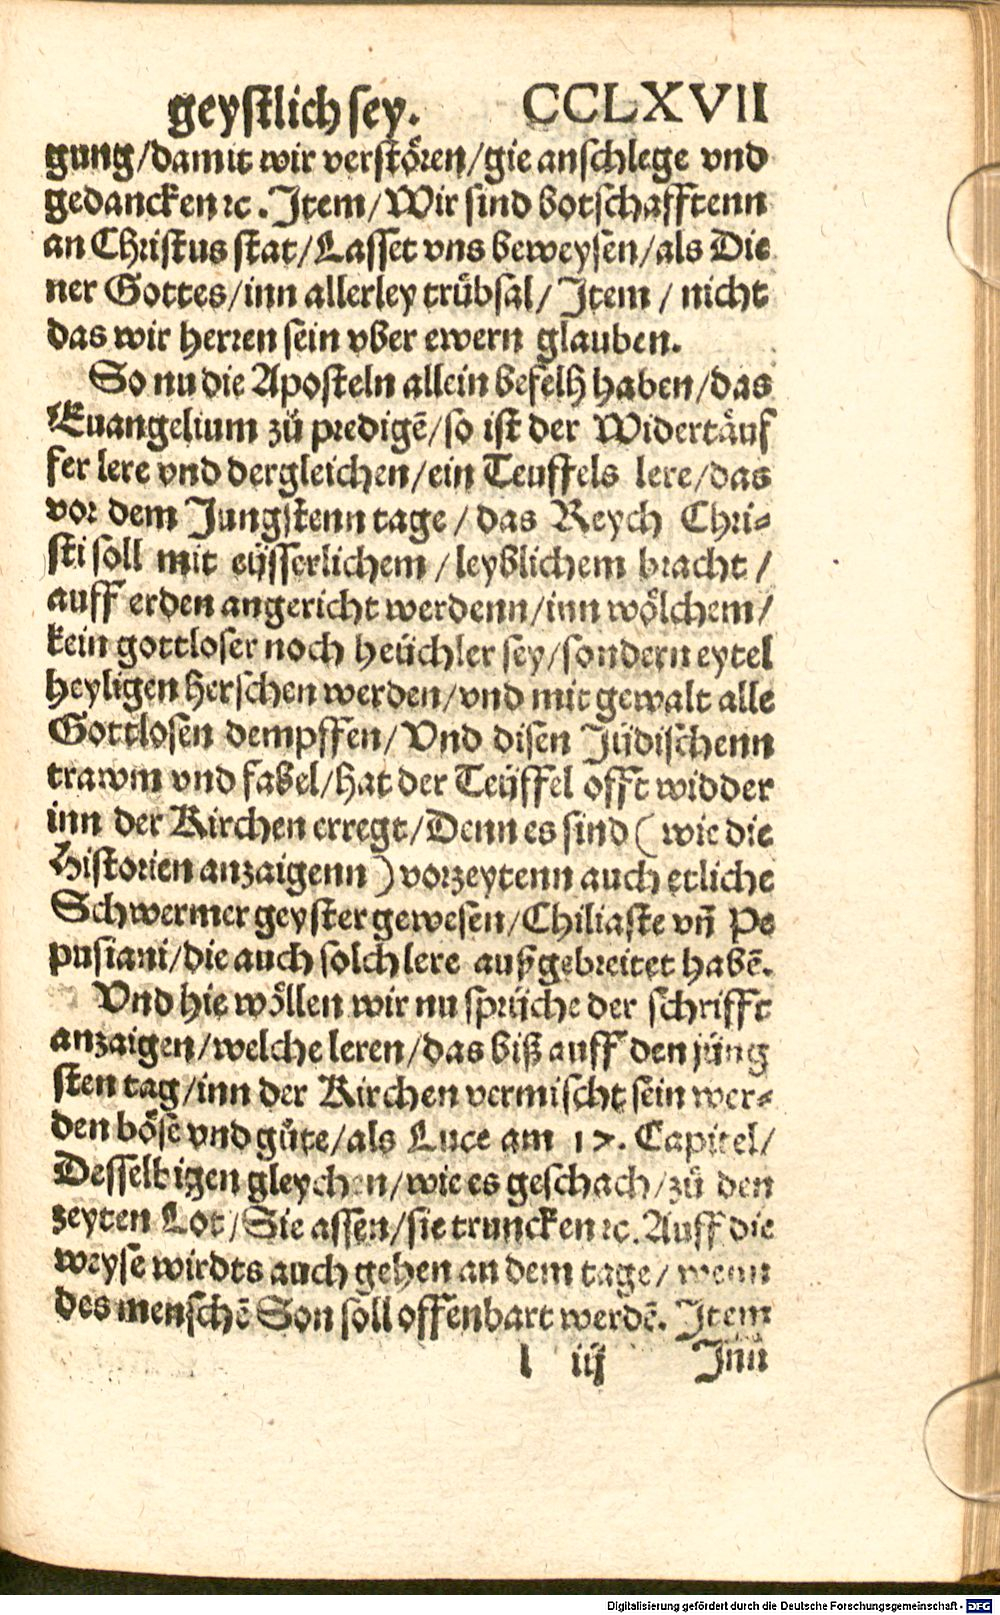 geystlich sey. CCLXVII
gung/damit wir verstören/gie anschlege vnd
gedancken ꝛc. Item/Wir sind botschafftenn
an Christus stat/Lasset vns beweysen/als Die
ner Gottes/inn allerley trübsal/ Item / nicht
das wir herren sein vber ewern glauben.
So nu die Aposteln allein befelh haben/das
Euangelium zů predigē/so ist der Widertäuf
fer lere vnd dergleichen/ein Teuffels lere/das
vor dem Jungstenn tage / das Reych Chri-
sti soll mit eüsserlichem / leyblichem bracht /
auff erden angericht werdenn/inn wölchem/
kein gottloser noch heüchler sey/sondern eytel
heyligen herschen werden/vnd mit gewalt alle
Gottlosen dempffen/Vnd disen Jüdischenn
trawm vnd fabel/hat der Teüffel offt widder
inn der Kirchen erregt/Denn es sind ( wie die
Historien anzaigenn ) vorzeytenn auch etliche
Schwermer geyster gewesen/Chiliaste vñ Pe
pusiani/die auch solch lere außgebreitet habē.
Vnd hie wöllen wir nu sprüche der schrifft
anzaigen/welche leren/das biß auff den jüng
sten tag/inn der Kirchen vermischt sein wer-
den böse vnd gůte/als Luce am 17. Capitel/
Desselbigen gleychen/wie es geschach/zů den
zeyten Lot/Sie assen/sie truncken ꝛc. Auff die
weyse wirdts auch gehen an dem tage/ wenn
des menschē Son soll offenbart werdē. Item
l iij Inn
Digitalisierung gefördert durch die Deutsche Forschungsgemeinschaft - DFG